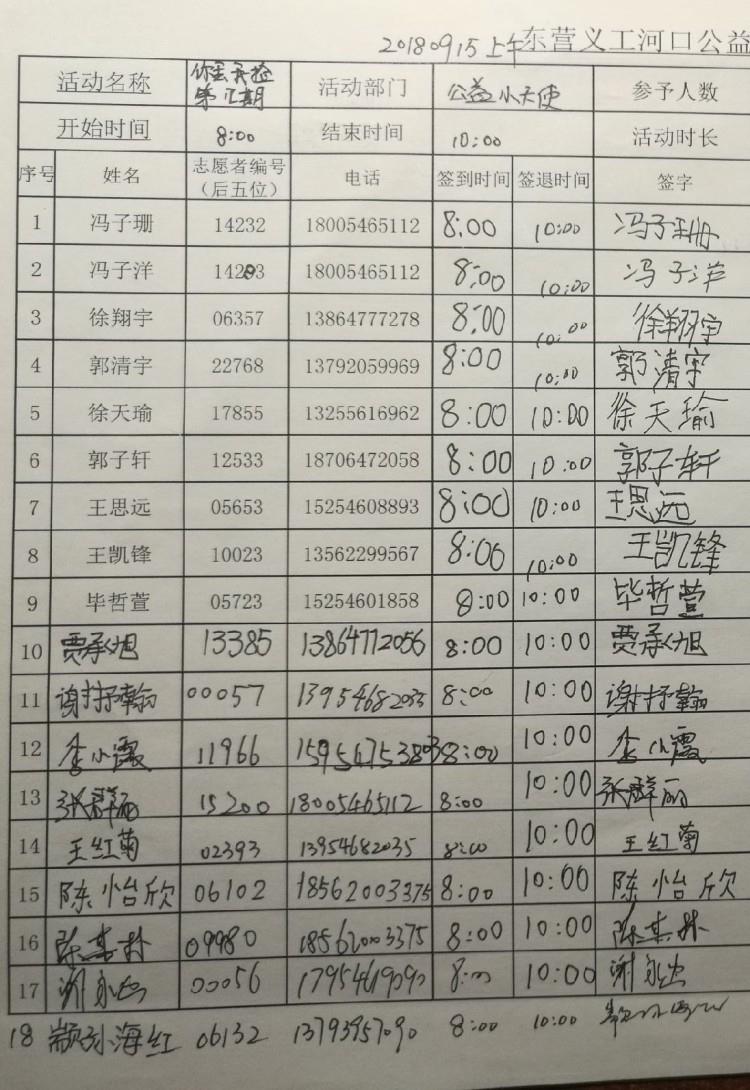 20180915上午东营义工河口公益
活动名称 你丢我捡 第 期 活动部门 公益小天使 参予人数
开始时间 8:00 结束时间 10:00 活动时长
序号 姓名 志愿者编号 电话 签到时间 签退时间 签字
（后五位）
1 冯子珊 14232 18005465112 8:00 10:00 冯子珊
2 冯子洋 14203 18005465112 8:00 10:00 冯子洋
3 徐翔宇 06357 13864777278 8:00 10:00 徐翔宇
4 郭清宇 22768 13792059969 8:00 10:00 郭清宇
5 徐天瑜 17855 13255616962 8:00 10:00 徐天瑜
6 郭子轩 12533 18706472058 8:00 10:00 郭子轩
7 王思远 05653 15254608893 8:00 10:00 王思远
8 王凯锋 10023 13562299567 8:00 10:00 王凯锋
9 毕哲萱 05723 15254601858 8:00 10:00 毕哲萱
10 贾承旭 13385 13864772056 8:00 10:00 贾承旭
11 谢抒翰 00057 13954682035 8:00 10:00 谢抒翰
12 李小霞 11966 15954753803 8:00 10:00 李小霞
13 张群丽 15200 18005465112 8:00 10:00 张群丽
14 王红菊 02393 13954682035 8:00 10:00 王红菊
15 陈怡欣 06102 18562003375 8:00 10:00 陈怡欣
16 陈其林 09980 18562003375 8:00 10:00 陈其林
17 谢 00056 17954619090 8:00 10:00 谢
18 颛孙海红 06132 13793957090 8:00 10:00